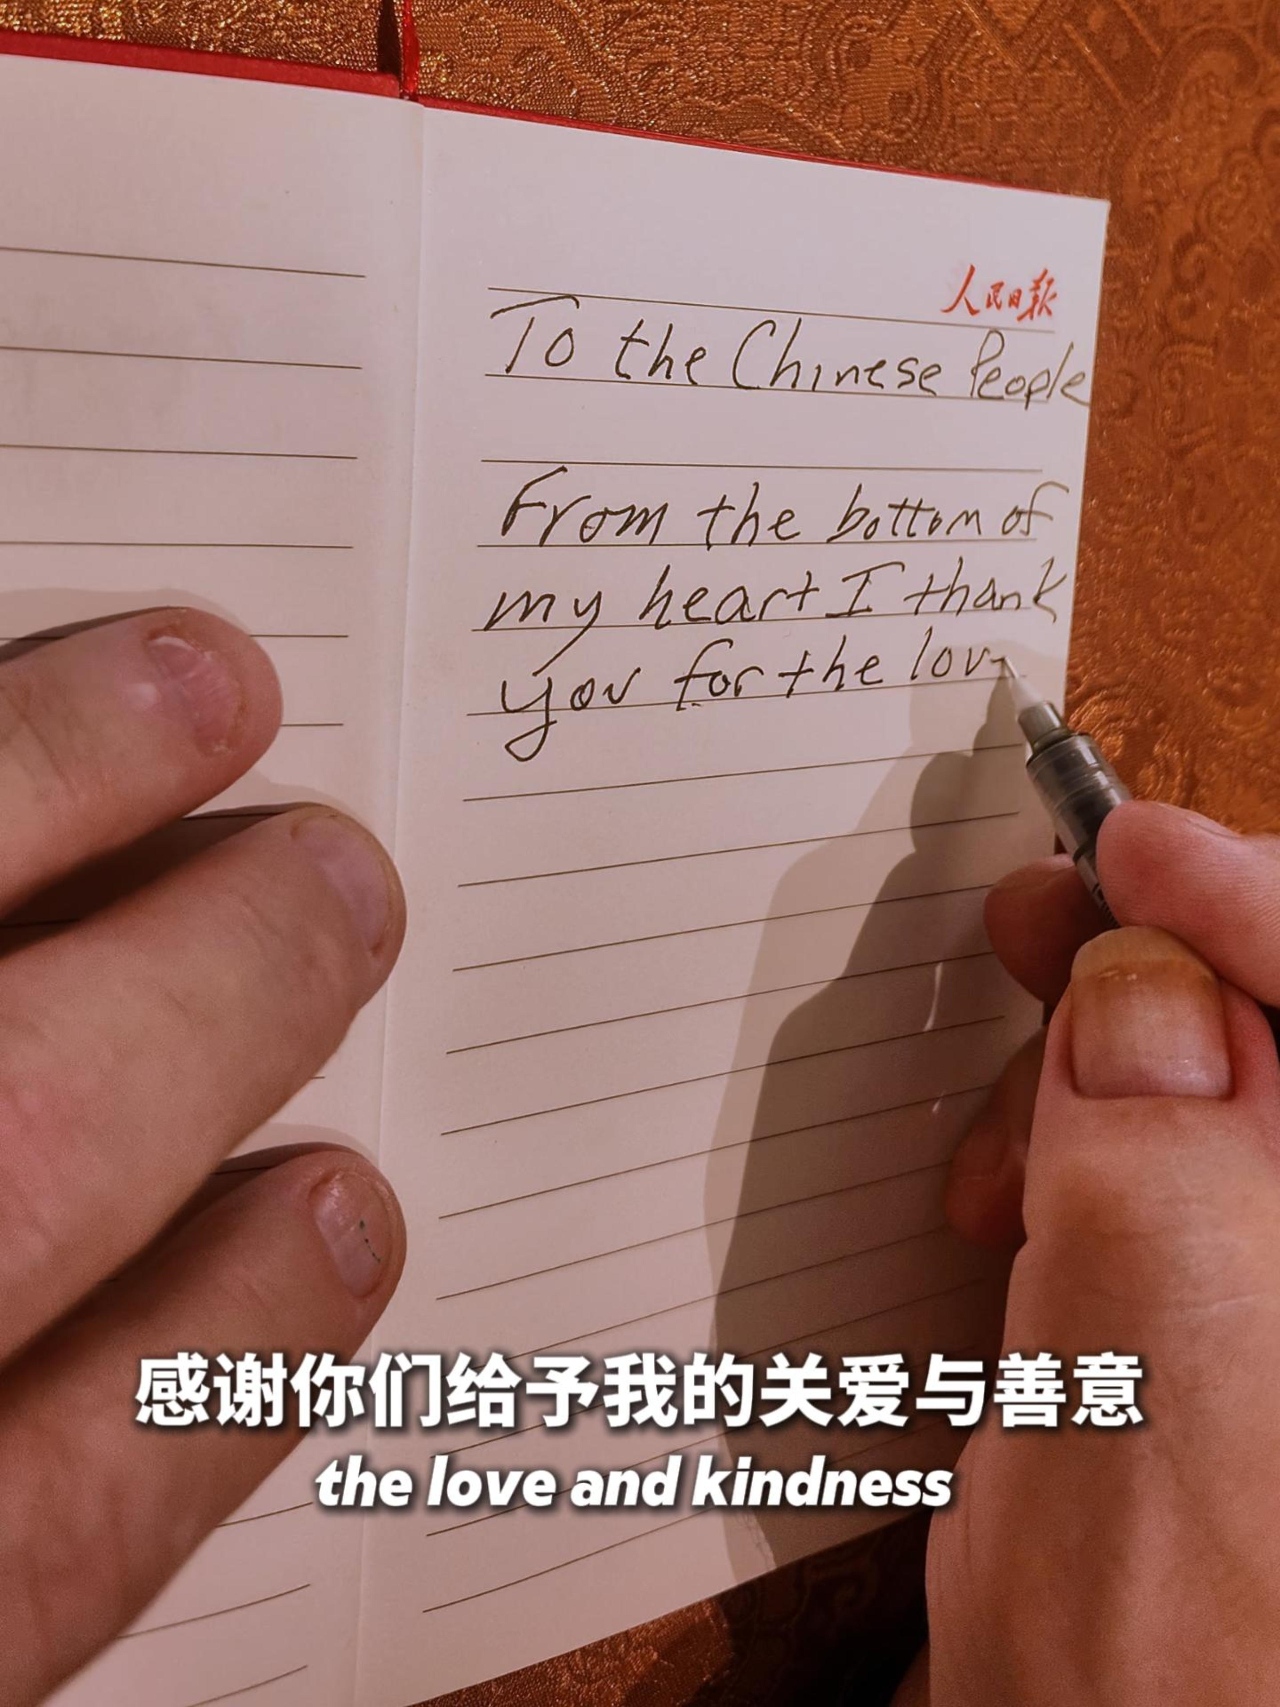 人民日报
To the Chinese People
From the bottom of
my heart I thank
you for the lov
感谢你们给予我的关爱与善意
the love and kindness